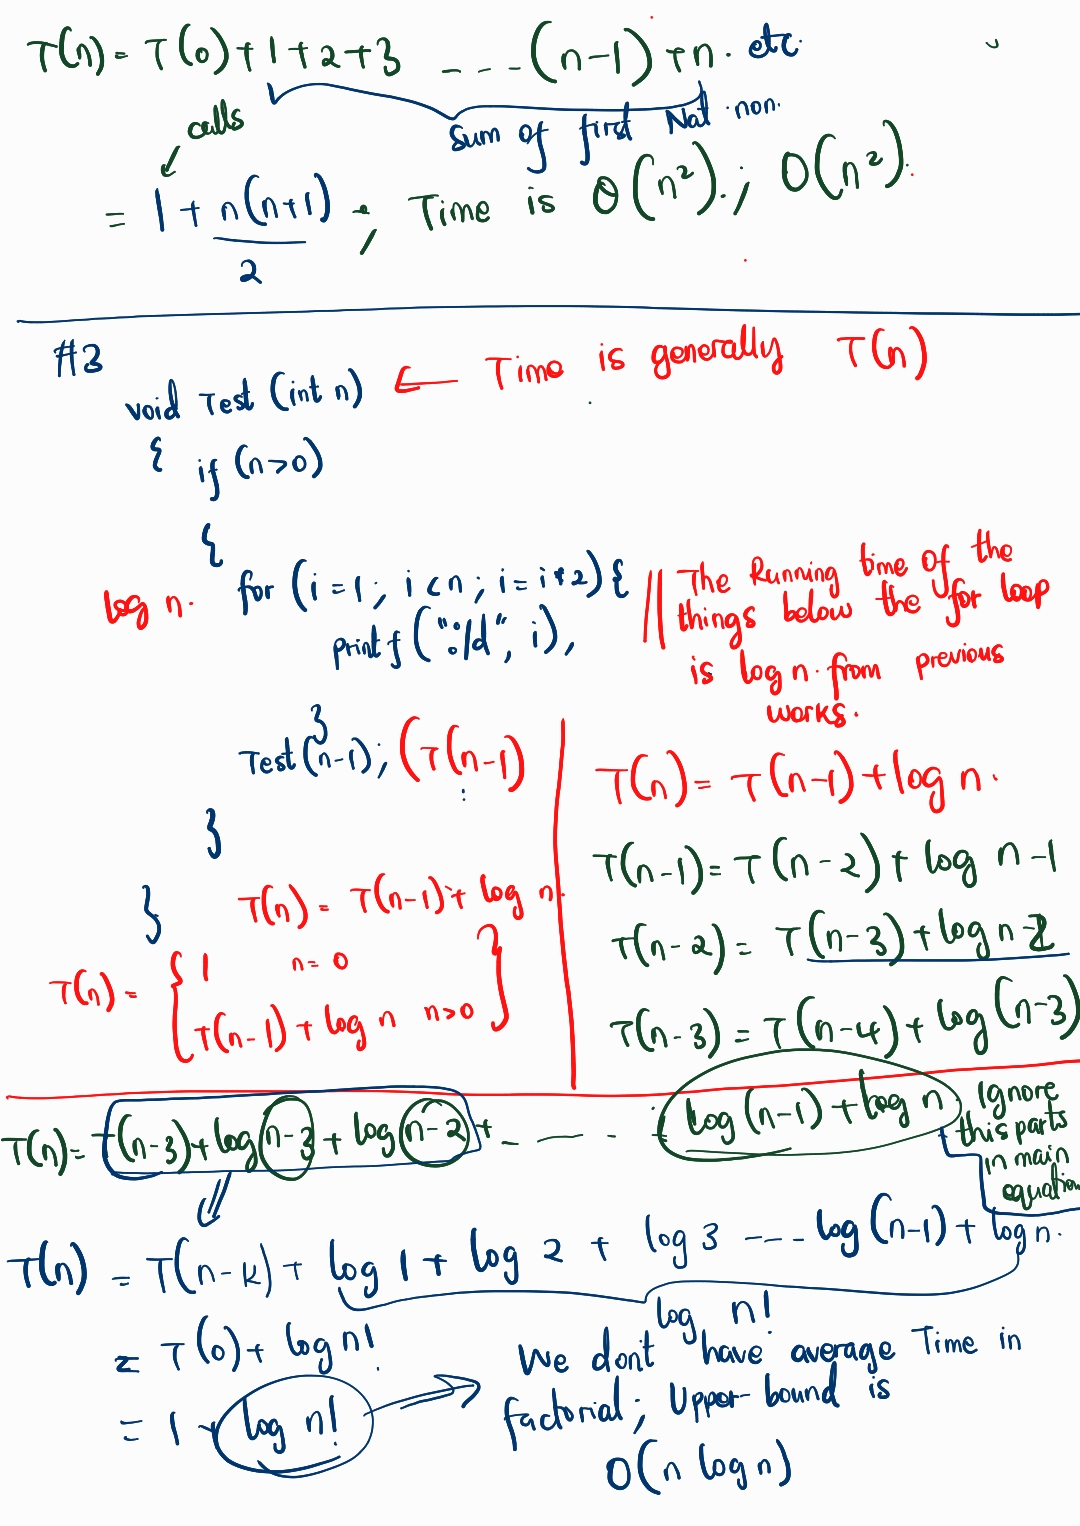 T(n) = T(0) + 1 + 2 + 3 ---- (n-1) + n. etc.
calls
Sum of first Nat non.
= 1 + n(n+1)/2 ; Time is θ(n²).; O(n²).
#3
void Test (int n) ← Time is generally T(n)
{ if (n>0)
{
log n. for (i=1; i<n; i=i*2) {
printf ("%d", i);
// The Running time of the
things below the for loop
is log n. from previous
works.
}
Test (n-1); (T(n-1)
}
}
T(n) = T(n-1) + log n.
T(n) = { 1 n=0
T(n-1) + log n n>0 }
T(n) = T(n-1) + log n.
T(n-1) = T(n-2) + log n-1
T(n-2) = T(n-3) + log n-2
T(n-3) = T(n-4) + log (n-3)
T(n) = T(n-3) + log n-3 + log n-2 + - ---- - log (n-1) + log n
Ignore
this parts
in main
equation
T(n) = T(n-k) + log 1 + log 2 + log 3 ---- log (n-1) + log n.
log n!
= T(0) + log n!
= 1 + log n! → We dont have average Time in
factorial; Upper-bound is
O(n log n)